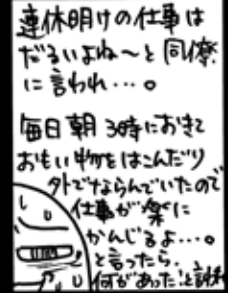 連休明けの仕事は
だるいよね〜と同僚
に言われ…。
毎日朝3時におきて
おもい物をはこんだり
外でならんでいたので
仕事が楽に
かんじるよ…。
と言ったら、
何があった!?と言われ